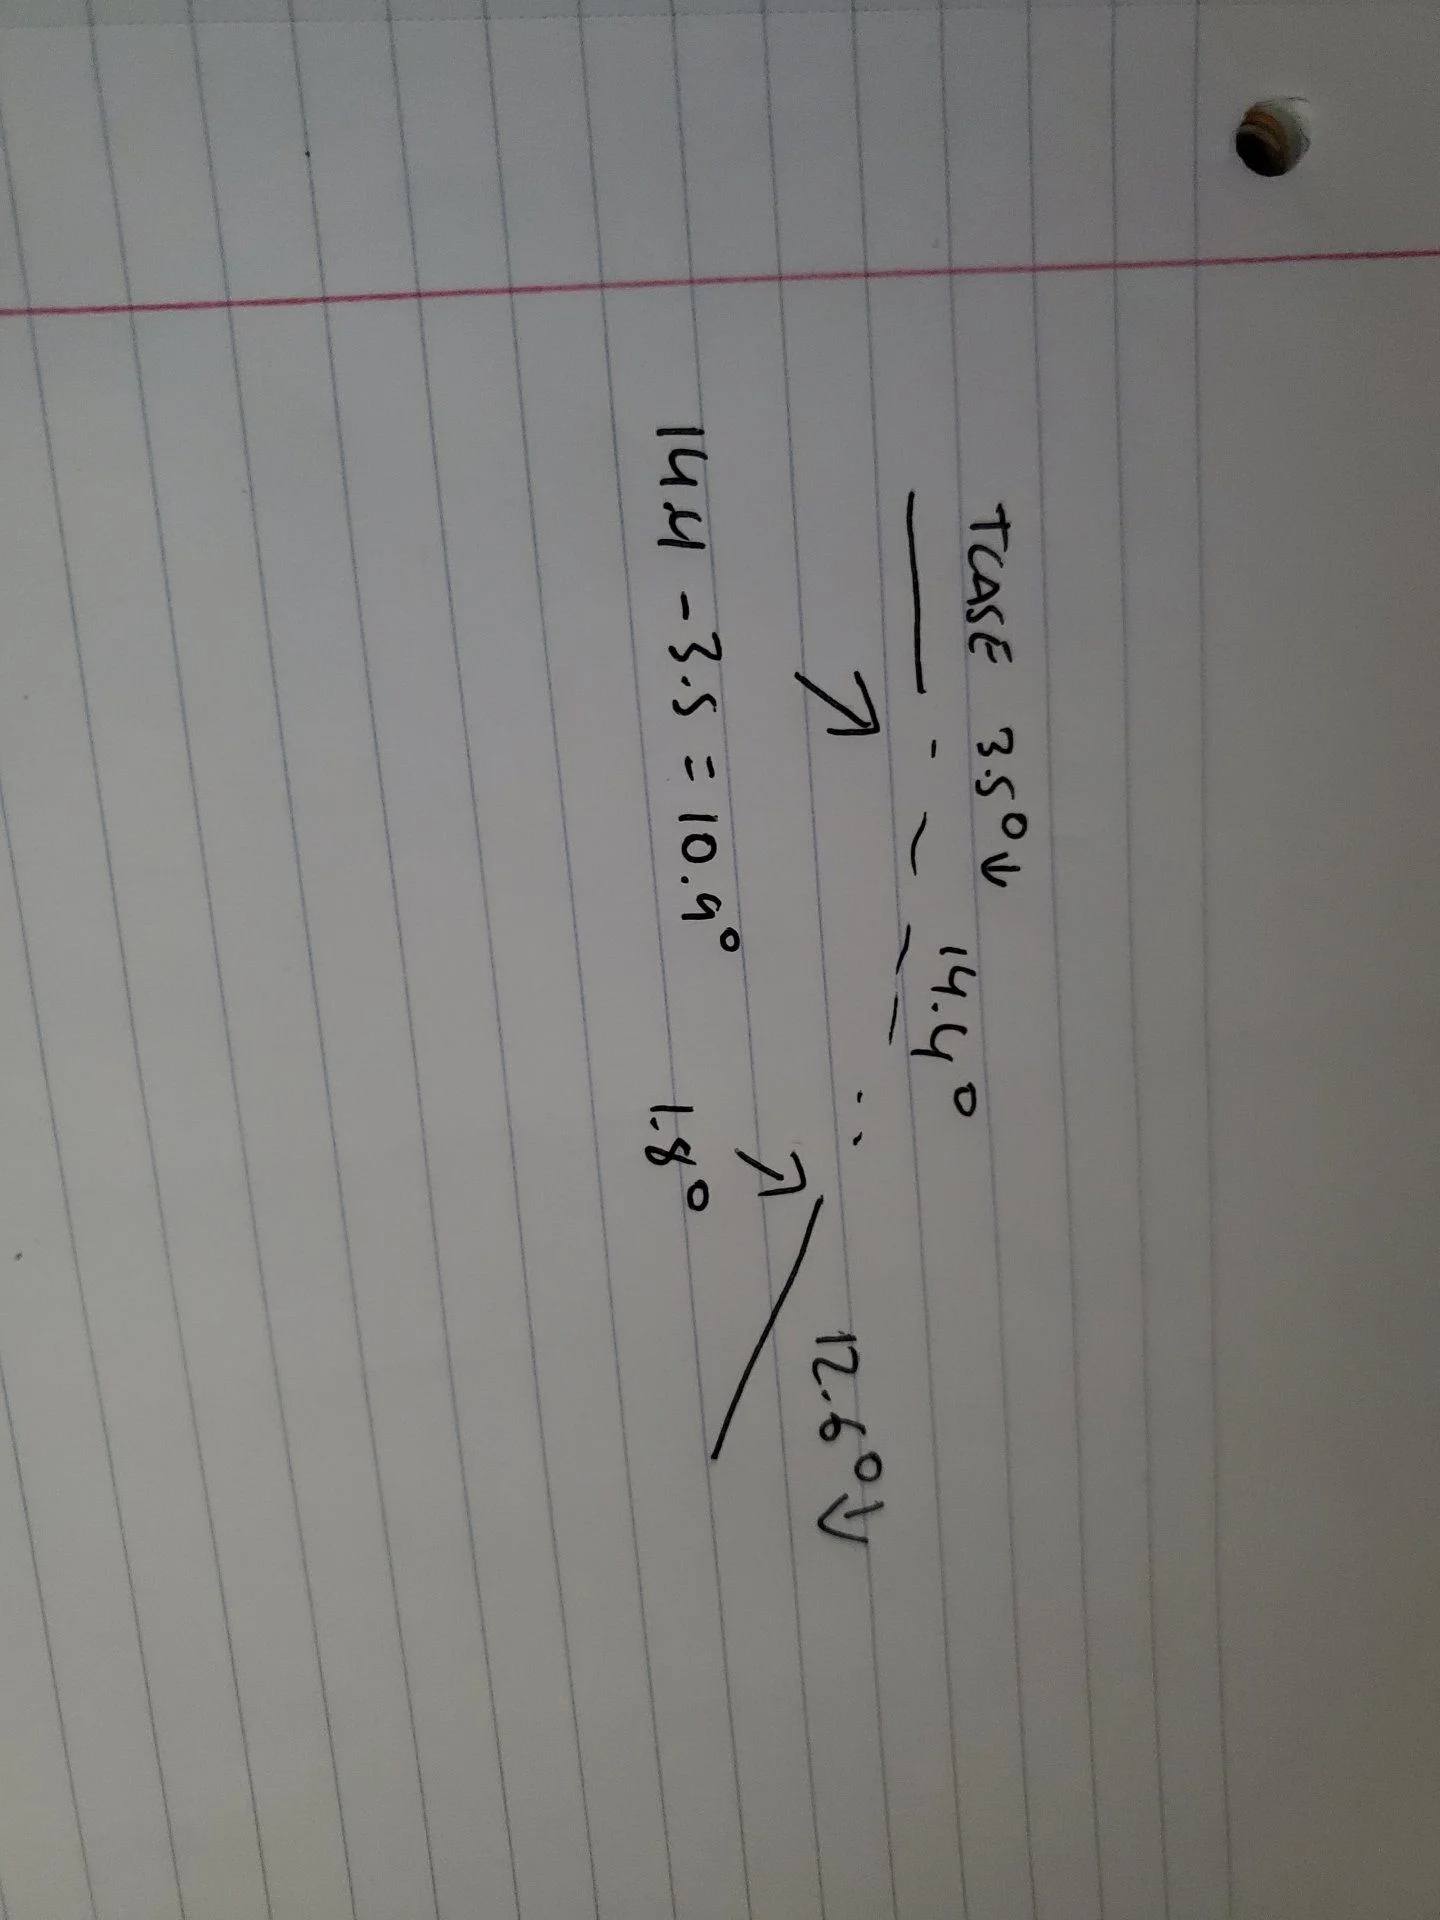 TCASE 3.5°↓
14.4°
12.6°↓
14.4 - 3.5 = 10.9°
1.8°